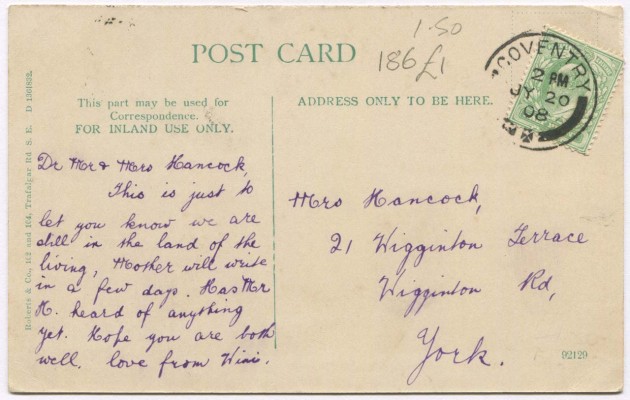 1.50
186 £1
POST CARD
COVENTRY
2 PM
JY 20
08
This part may be used for
Correspondence.
FOR INLAND USE ONLY.
ADDRESS ONLY TO BE HERE.
Dr Mr & Mrs Hancock,
This is just to
let you know we are
still in the land of the
living, Mother will write
in a few days. Has Mr
H. heard of anything
yet. Hope you are both
well. love from Winnie.
Mrs Hancock,
21 Wigginton Terrace
Wigginton Rd,
York.
92129
Roberts & Co., 102 and 104, Trafalgar Rd S. E. D 1301832.